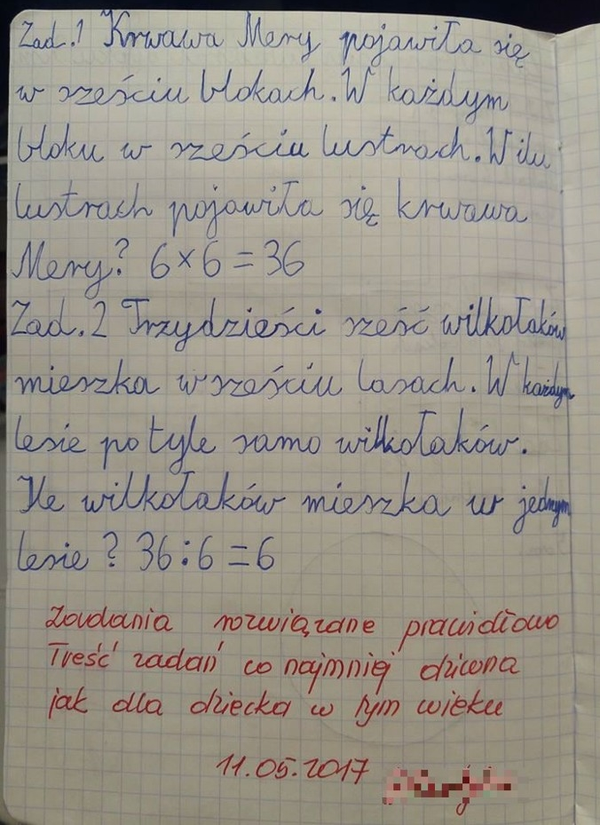 Zad.1 Krwawa Mery pojawiła się
w sześciu blokach. W każdym
bloku w sześciu lustrach. W ilu
lustrach pojawiła się krwawa
Mery? 6 × 6 = 36
Zad.2 Trzydzieści sześć wilkołaków
mieszka w sześciu lasach. W każdym
lesie po tyle samo wilkołaków.
Ile wilkołaków mieszka w jednym
lesie? 36 : 6 = 6
Zadania rozwiązane prawidłowo
Treść zadań co najmniej dziwna
jak dla dziecka w tym wieku
11.05.2017